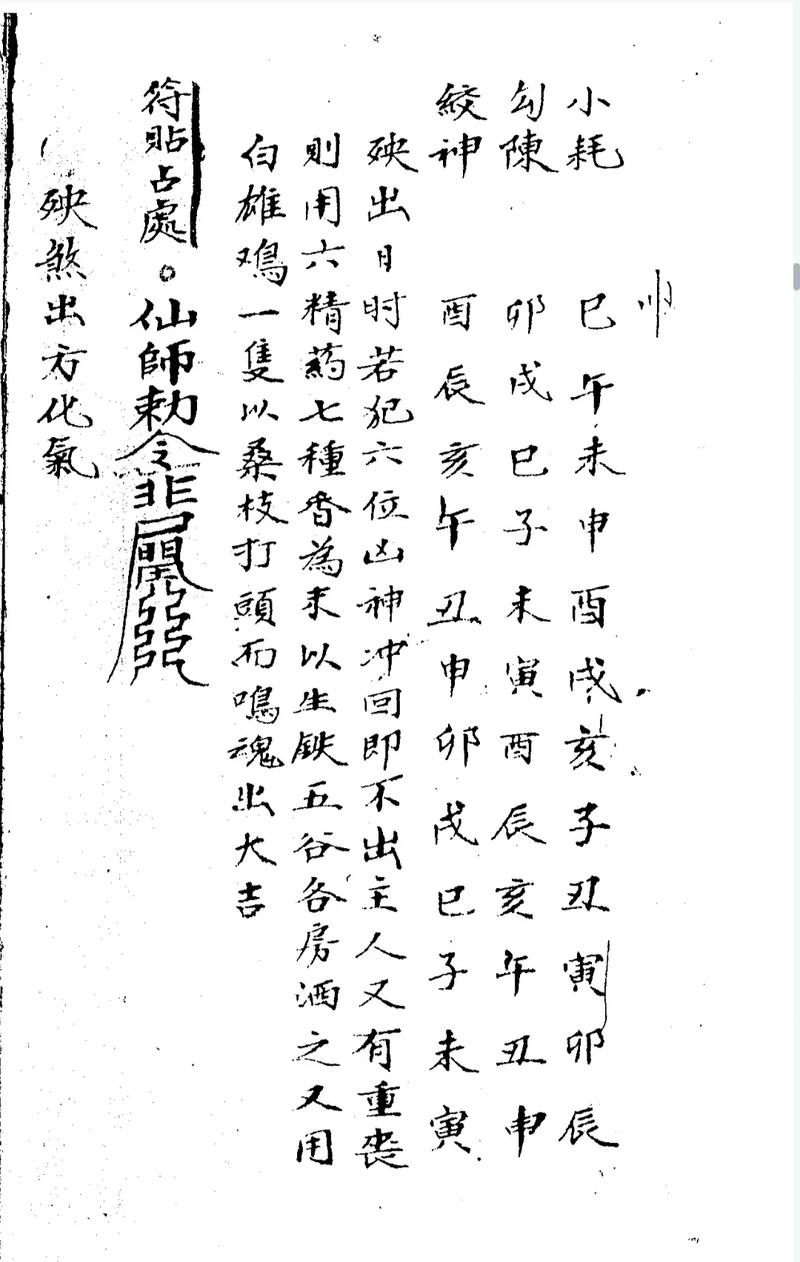 小耗 巳午未申酉戌亥子丑寅卯辰
勾陳 卯戌巳子未寅酉辰亥午丑申
絞神 酉辰亥午丑申卯戌巳子未寅
殃出日时若犯六位凶神冲回即不出主人又有重丧
則用六精药七種香為末以生鉄五谷各房洒之又用
白雄鳮一隻以桑枝打頭而鳴魂出大吉
符貼占處。仙師勅令
殃煞出方化氣